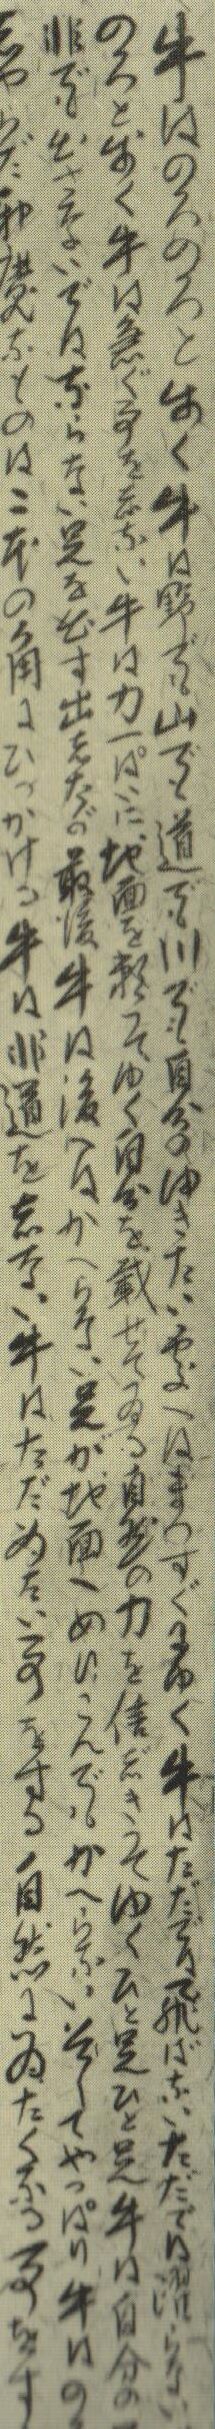 牛はのろのろと歩く牛は野でも山でも道でも川でも自分のゆきたい処へはまつすぐにゆく牛はただでは飛ばないただでは躍らない
のろと歩く牛は急ぐ事をしない牛は力一ぱいに地面を頼つてゆく自分を載せてゐる自然の力を信じきつてゆくひと足ひと足牛は自分の
非でも出さないではならない足を出す出したが最後牛は後へはかへらない足が地面へめりこんでもかへらないそしてやつぱり牛はの
しやらだ邪魔なものは二本の角にひつかける牛は非道をしない牛はただ為たい事をする自然に為たくなる事をす